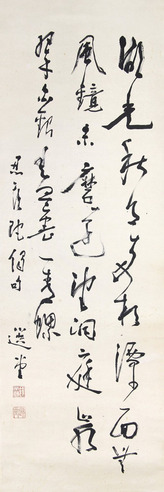 湖光秋月兩相和潭面無
風鏡未磨遙望洞庭
翠白銀盤裏一青螺
選堂